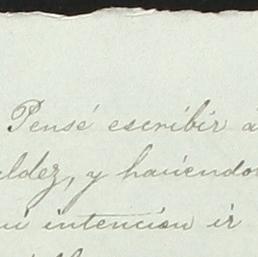 Pensé escribir á
ldez, y haciendo
mi intencion ir